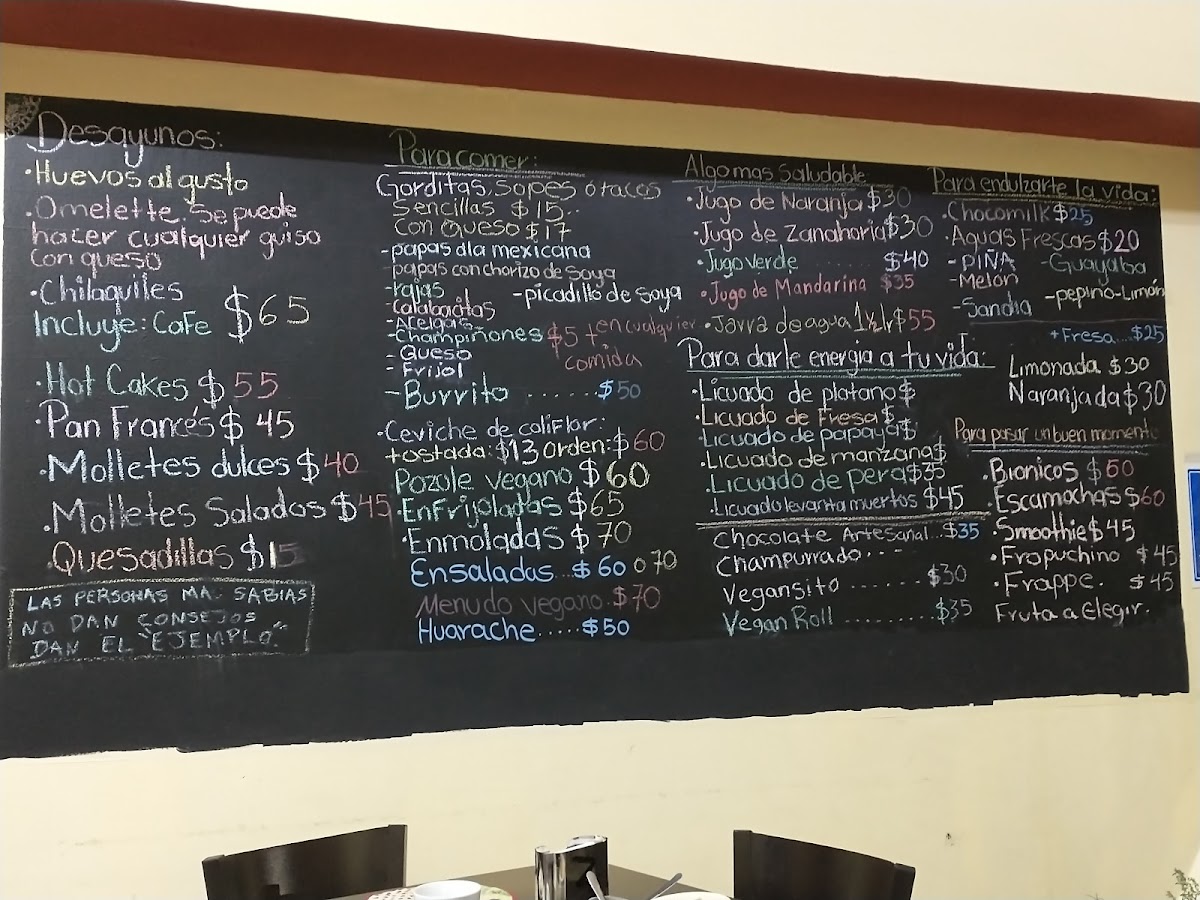 Desayunos:
·Huevos al gusto
·Omelette. Se puede
hacer cualquier guiso
con queso
·Chilaquiles
Incluye: Cafe $65
·Hot Cakes $55
·Pan Francés $ 45
·Molletes dulces $40
·Molletes Salados $45
·Quesadillas $15
LAS PERSONAS MA. SABIAS
NO DAN CONSEJOS
DAN EL "EJEMPLO".
Para comer:
Gorditas, Sopes ó tacos
Sencillas $15..
con Queso $17
-papas ala mexicana
-papas con chorizo de Soya
-rajas -picadillo de Soya
-calabacitas
-Acelgas
-Champiñones $5 + en cualquier
- Queso comida
- Frijol
- Burrito ....... $50
·Ceviche de coliFlor:
tostada: $13 Orden: $60
Pozole vegano $60
·EnFrijoladas $65
·Enmoladas $ 70
Ensaladas... $60 o 70
Menudo vegano. $70
Huarache..... $50
Algo mas Saludable:
·Jugo de Naranja $30
·Jugo de Zanahoria $30
·Jugo Verde $40
·Jugo de Mandarina $35
·Jarra de agua 1½ lt $55
Para darle energia a tu vida:
·Licuado de platano $
·Licuado de Fresa $
·Licuado de papaya $
·Licuado de manzana $
·Licuado de pera $35
·Licuado levanta muertos $45
Chocolate Artesanal... $35
Champurrado....
Vegansito ....... $30
Vegan Roll .......... $35
Para endulzarte la vida:
·Chocomilk $25
·Aguas Frescas $20
- PIÑA -Guayaba
- Melón
- Sandia -pepino-Limón
+Fresa.... $25
Limonada $30
Naranjada $30
Para pasar un buen momento
·Bionicos $60
·Escamochas $60
·Smoothie $45
·Frapuchino $45
·Frappe. $45
Fruta a Elegir.